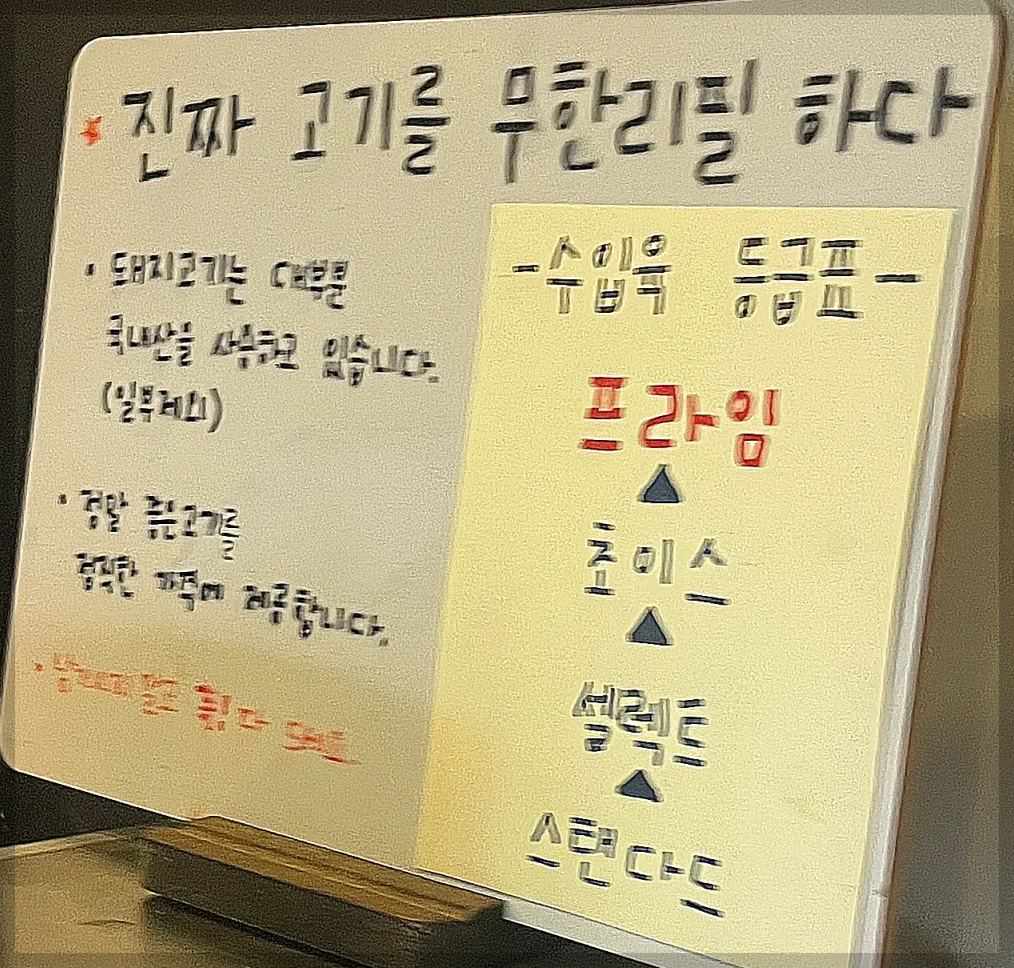 * 진짜 고기를 무한리필 하다
· 돼지고기는 대부분
국내산을 사용하고 있습니다.
(일부제외)
· 정말 좋은고기를
정직한 가격에 제공합니다.
-수입육 등급표-
프라임
▲
초이스
▲
셀렉트
▲
스탠다드